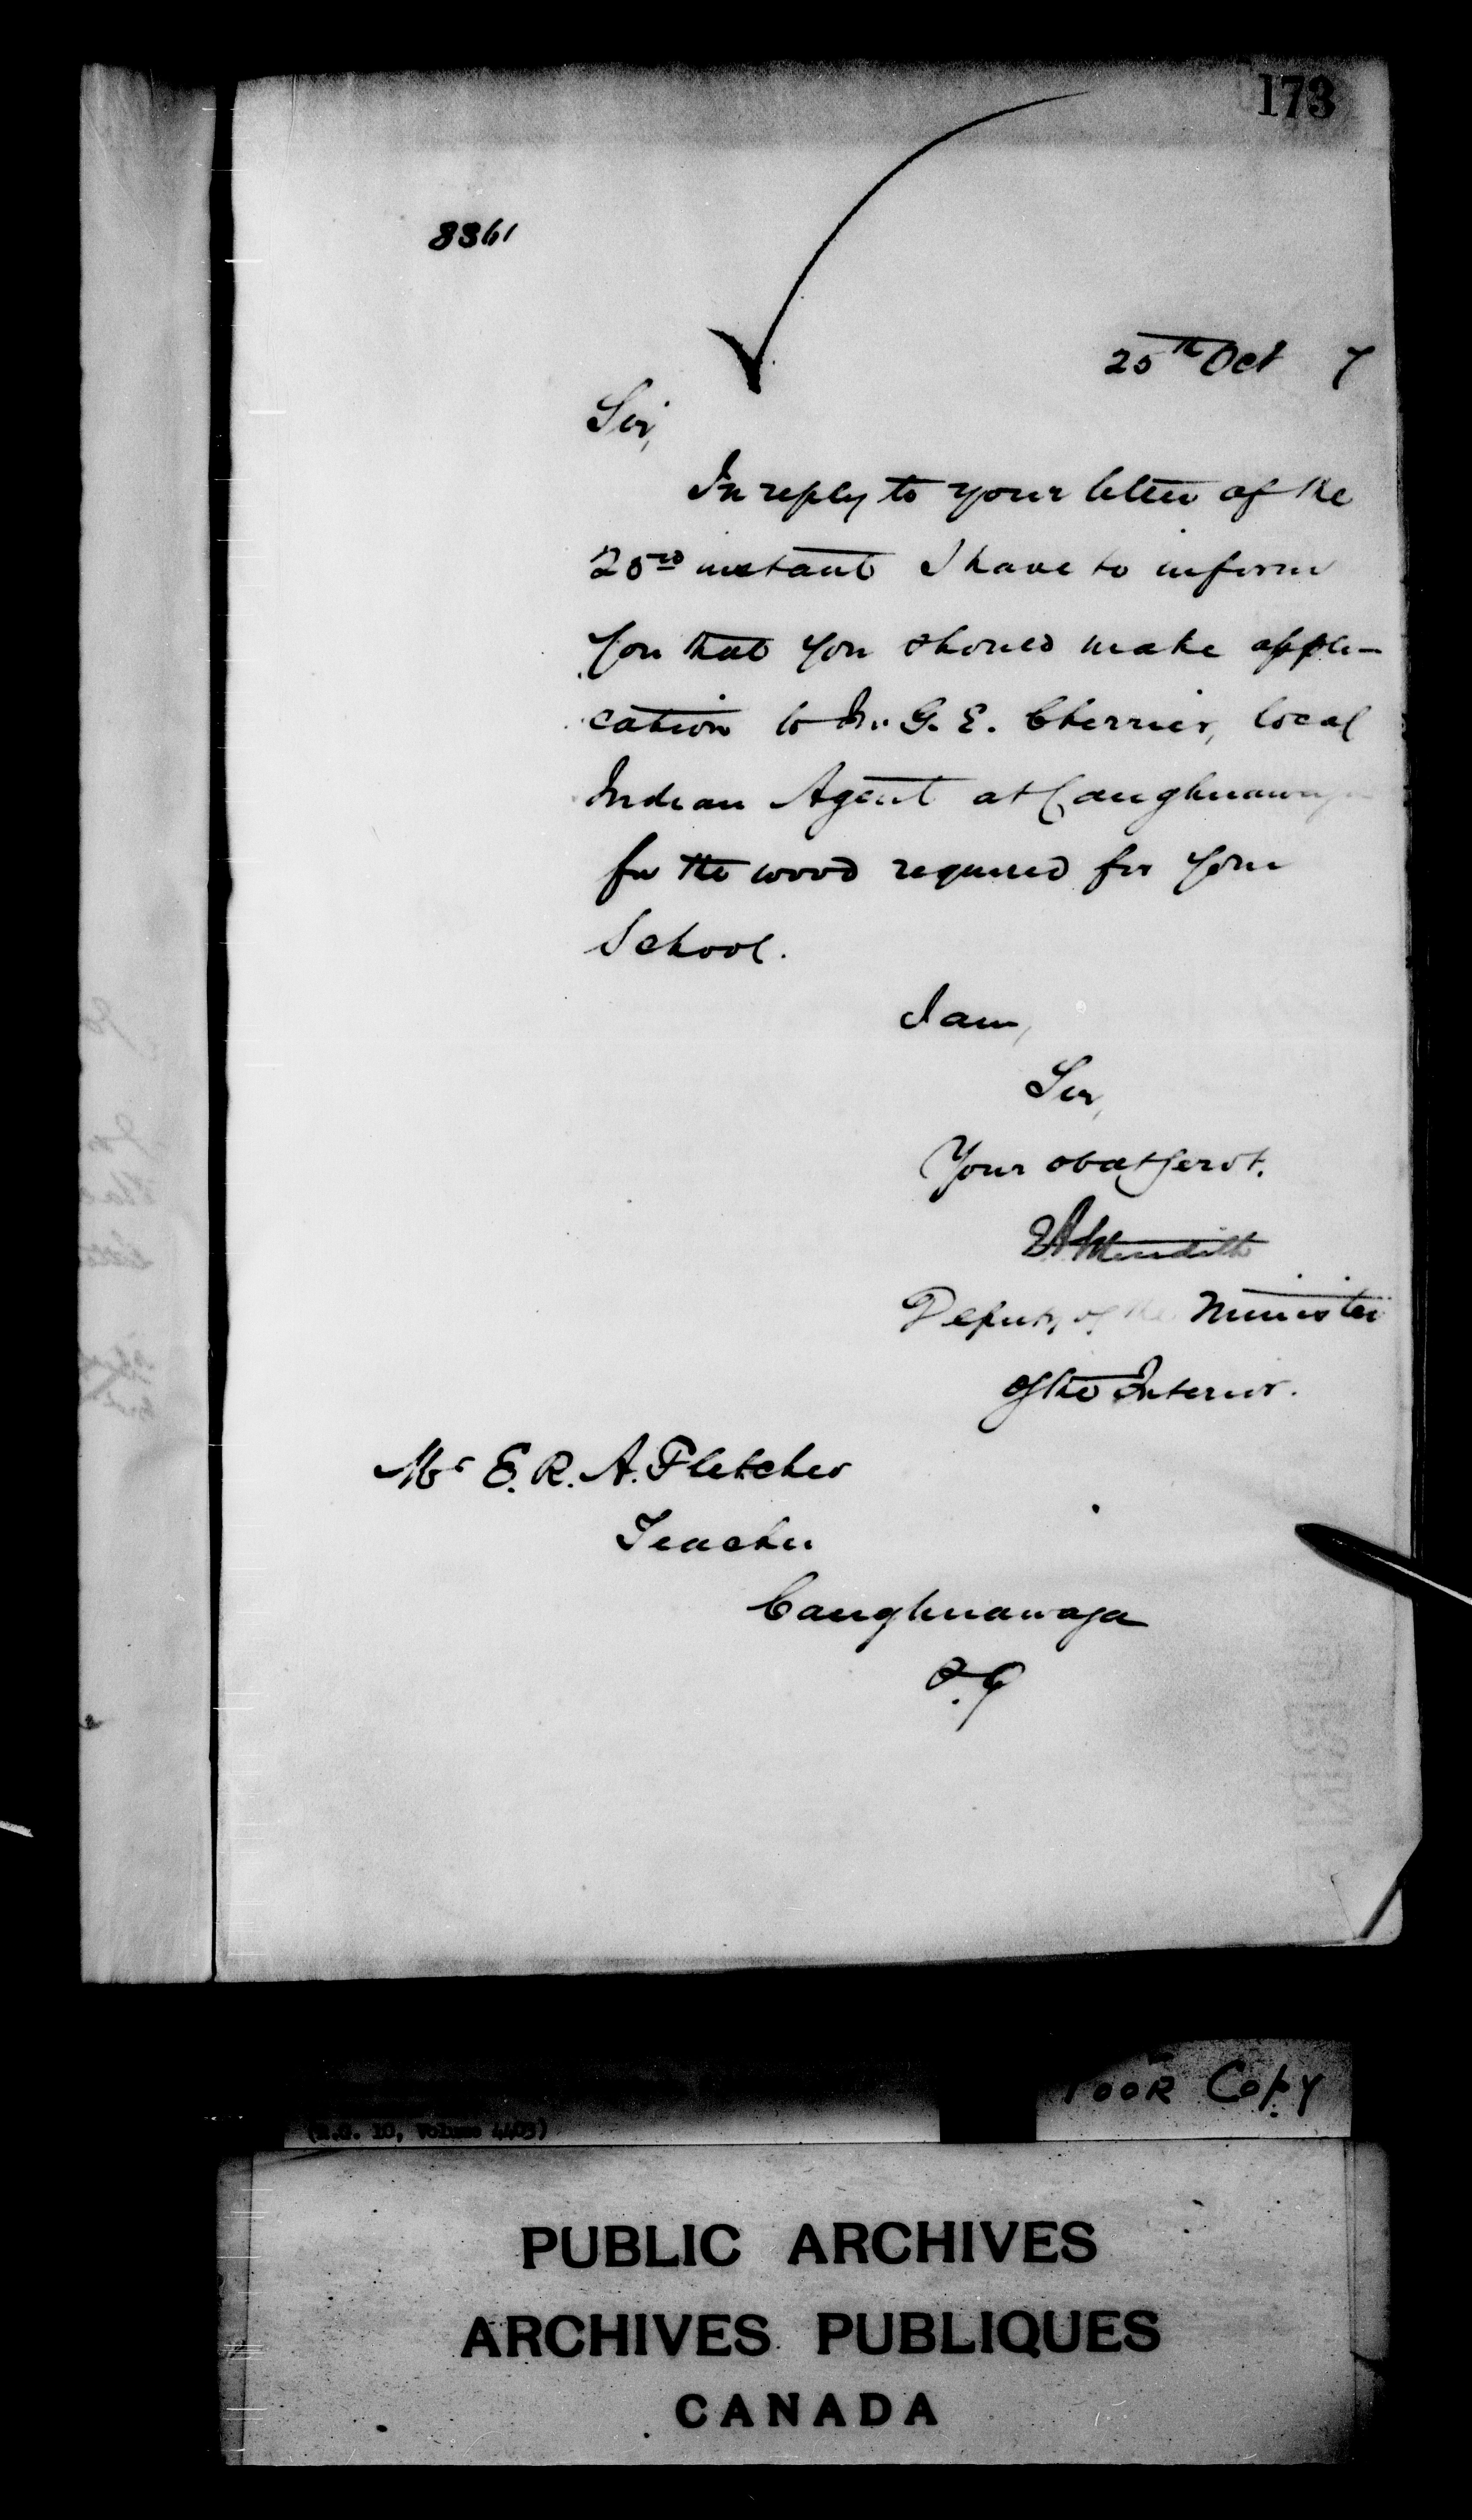 173
8361
25th Oct 7
Sir,
In reply to your letter of the
23rd instant I have to inform
you that you should make appli-
cation to Mr. G. E. Cherrier, local
Indian Agent at Caughnawaga
for the wood required for your
School.
I am,
Sir,
Your obedt servt.
E A Meredith
Deputy of the Minister
of the Interior.
Mr E. R. A. Fletcher
Teacher
Caughnawaga
P.Q
Poor Copy
(R.G. 10, Volume 4405)
PUBLIC ARCHIVES
ARCHIVES PUBLIQUES
CANADA